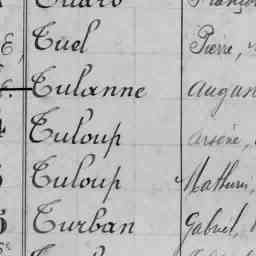 E, Tuel Pierre,
Tulanne Augus
Tuloup Arsène,
Tuloup Mathurin,
5 Turban Gabriel,